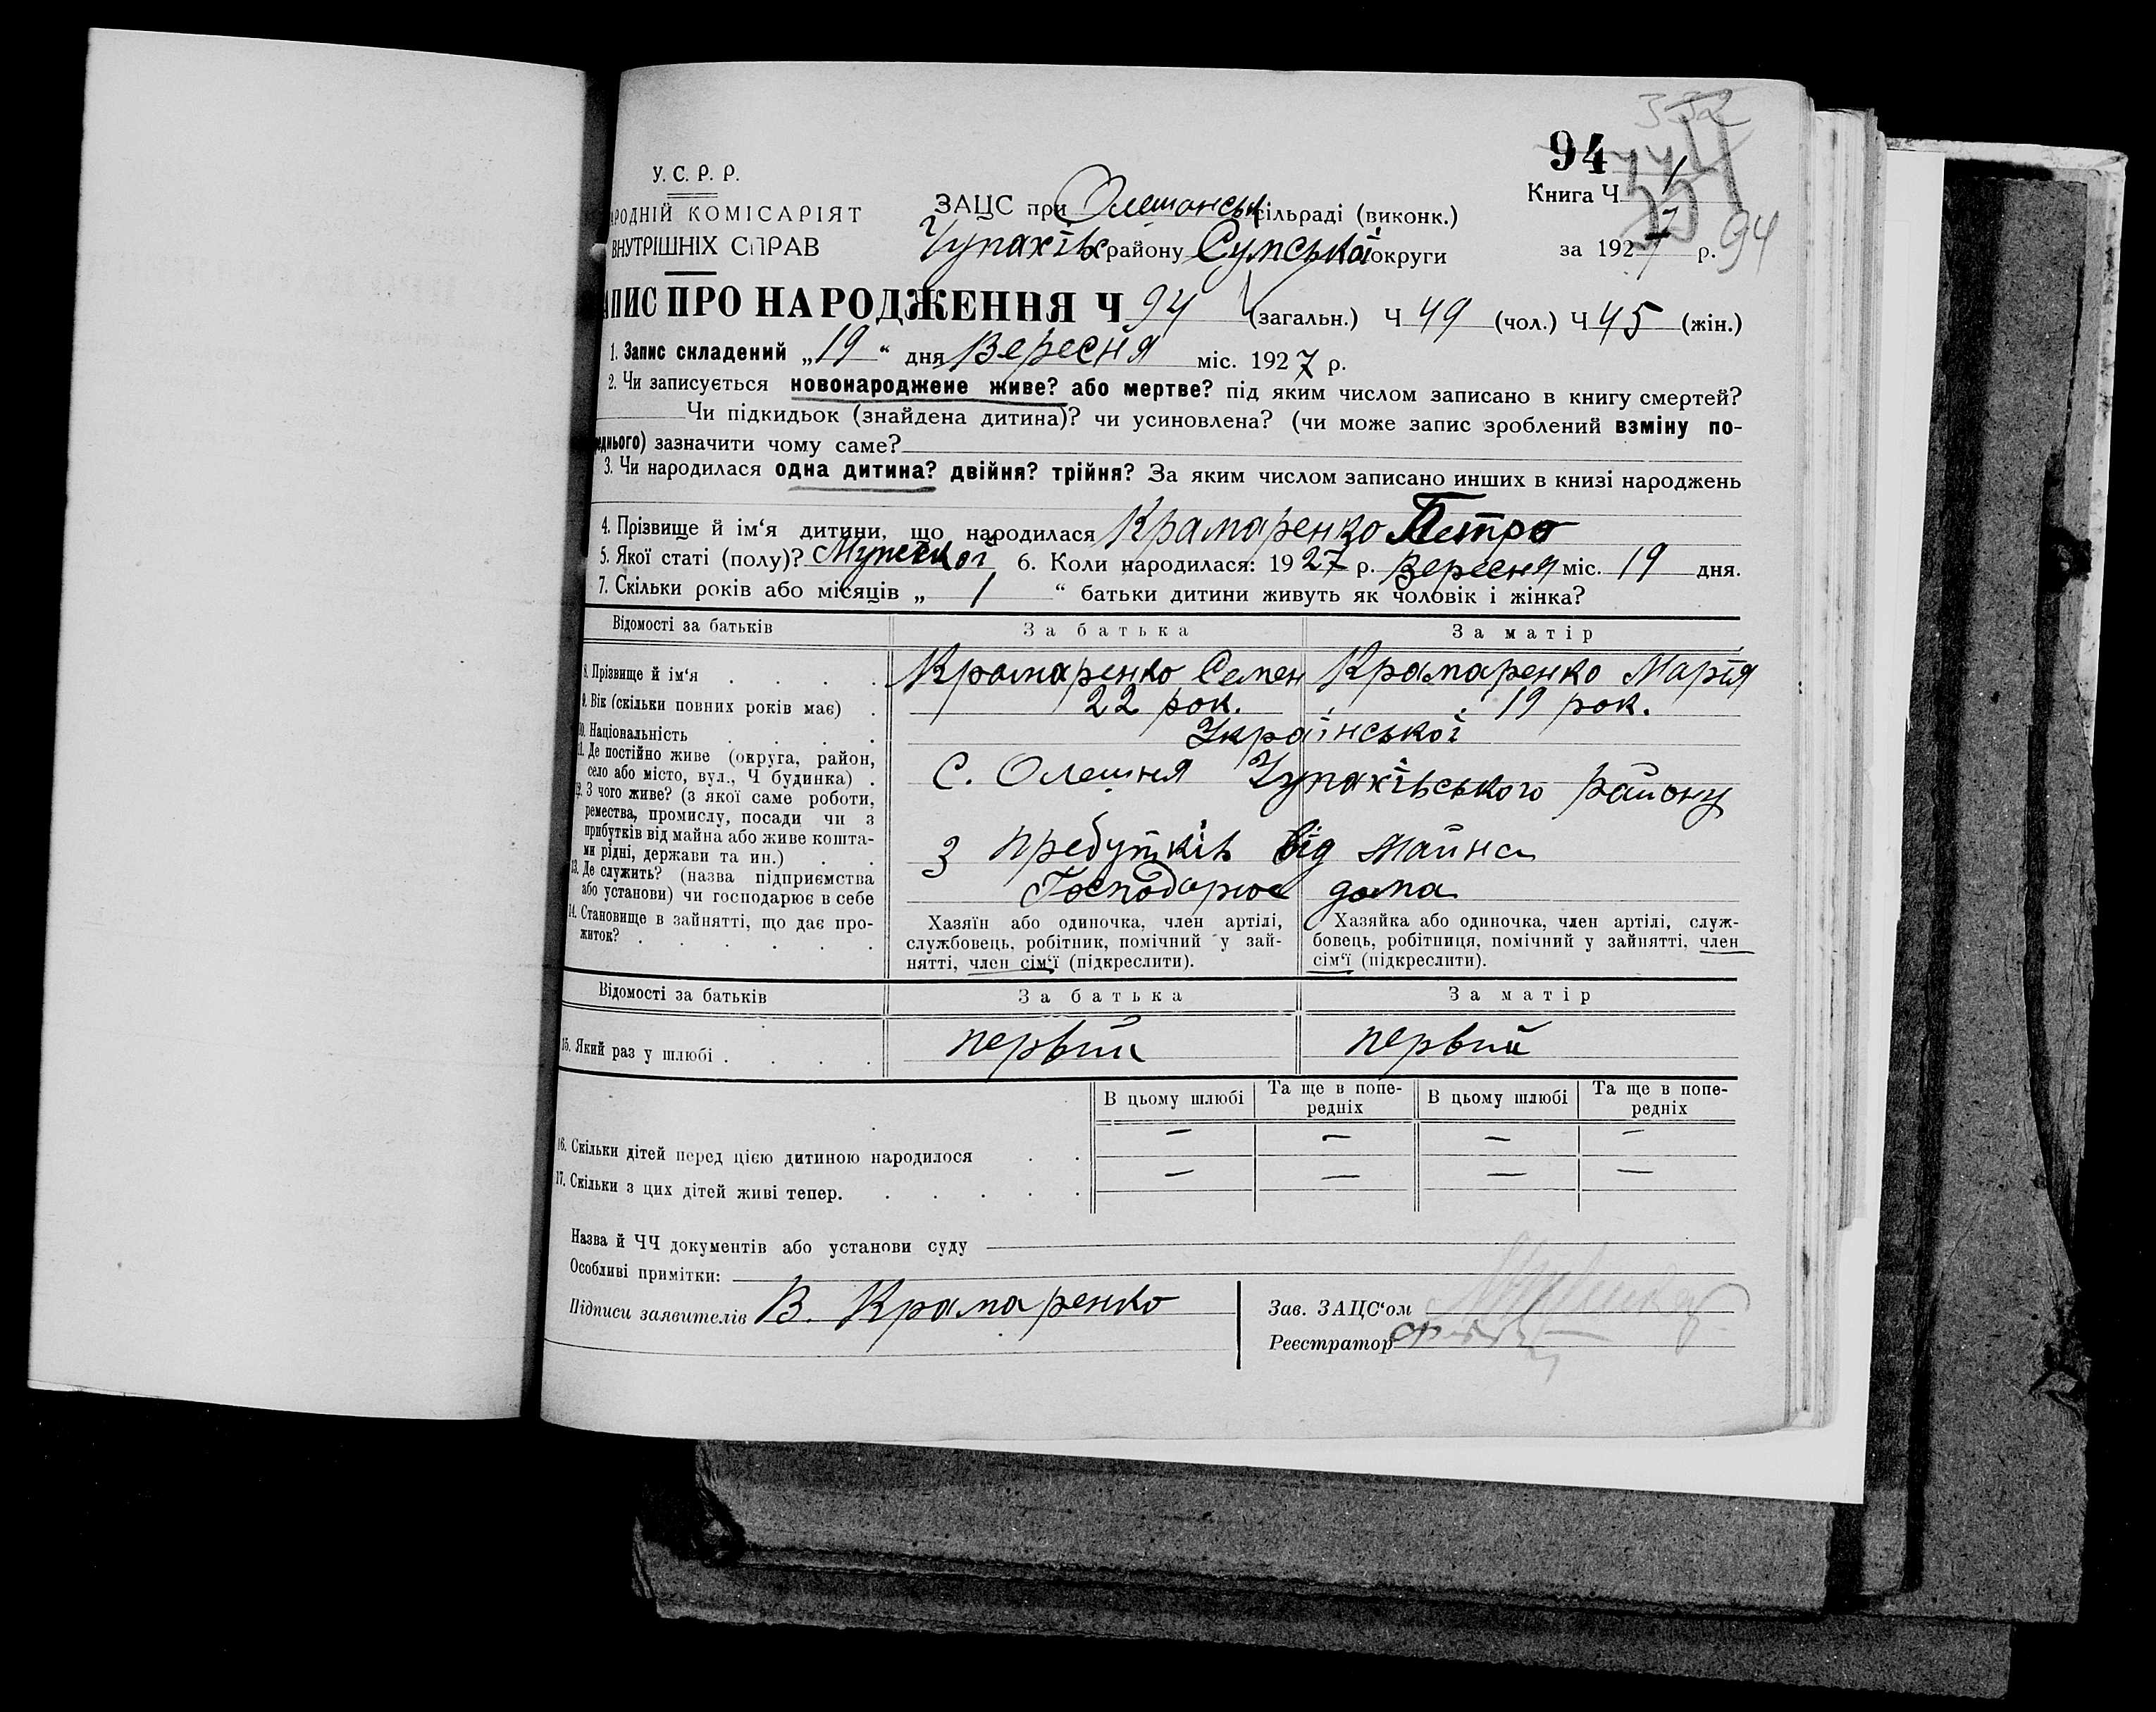 94
У. С. Р. Р.
Книга Ч 1
РОДНІЙ КОМІСАРІЯТ ЗАЦС при Олешанськ сільраді (виконк.)
ВНУТРІШНІХ СПРАВ Чупахівс району Сумської округи за 1927 р. 94
ПИС ПРО НАРОДЖЕННЯ Ч 94 (загальн.) Ч 49 (чол.) Ч 45 (жін.)
1. Запис складений „19“ дня Вересня міс. 1927 р.
2. Чи записується новонароджене живе? або мертве? під яким числом записано в книгу смертей?
Чи підкидьок (знайдена дитина)? чи усиновлена? (чи може запис зроблений взміну по-
еднього) зазначити чому саме?
3. Чи народилася одна дитина? двійня? трійня? За яким числом записано инших в книзі народжень
4. Прізвище й ім‘я дитини, що народилася Крамаренко Петро
5. Якої статі (полу)? Мужеської 6. Коли народилася: 1927 р. Вересня міс. 19 дня.
7. Скільки років або місяців „ 1 “ батьки дитини живуть як чоловік і жінка?
Відомості за батьків За батька За матір
8. Прізвище й ім‘я Крамаренко Семен Крамаренко Марія
9. Вік (скільки повних років має) 22 рок. 19 рок.
10. Національність Української
11. Де постійно живе (округа, район,
село або місто, вул., Ч будинка) С. Олешня Чупахівського району
12. З чого живе? (з якої саме роботи,
ремества, промислу, посади чи з
прибутків від майна або живе кошта-
ми рідні, держави та ин.) З пребутків від майна
13. Де служить? (назва підприємства
або установи) чи господарює в себе Господарює дома
14. Становище в зайнятті, що дає про-
житок?
Хазяїн або одиночка, член артілі,
службовець, робітник, помічний у зай-
нятті, член сім‘ї (підкреслити).
Хазяйка або одиночка, член артілі, служ-
бовець, робітниця, помічний у зайнятті, член
сім‘ї (підкреслити).
Відомості за батьків За батька За матір
15. Який раз у шлюбі первий первий
В цьому шлюбі Та ще в попе- В цьому шлюбі Та ще в попе-
редніх редніх
16. Скільки дітей перед цією дитиною народилося — — — —
17. Скільки з цих дітей живі тепер. — — — —
Назва й ЧЧ документів або установи суду
Особливі примітки:
Підписи заявителів В. Крамаренко
Зав. ЗАЦС‘ом
Реєстратор